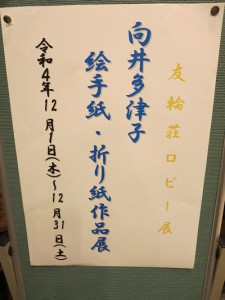 友輪荘ロビー展
向井多津子
絵手紙・折り紙作品展
令和4年12月1日(木)~12月31日(土)